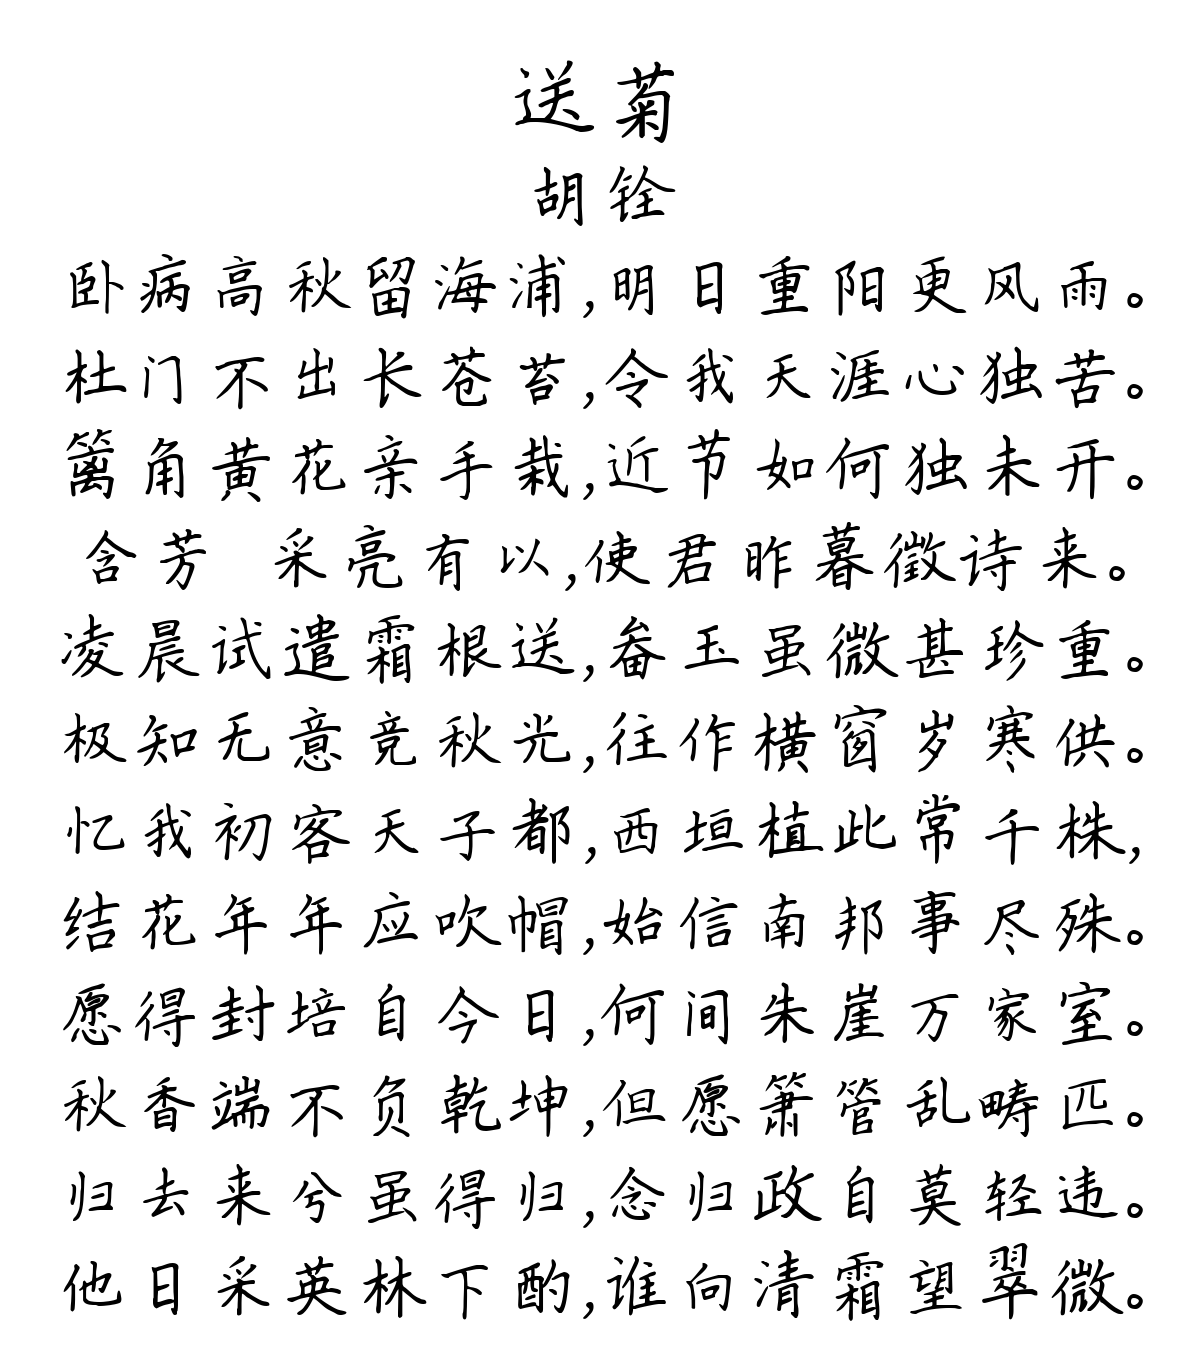 送菊
胡铨
卧病高秋留海浦,明日重阳更风雨。
杜门不出长苍苔,令我天涯心独苦。
篱角黄花亲手栽,近节如何独未开。
含芳 采亮有以,使君昨暮徵诗来。
凌晨试遣霜根送,畚玉虽微甚珍重。
极知无意竞秋光,往作横窗岁寒供。
忆我初客天子都,西垣植此常千株,
结花年年应吹帽,始信南邦事尽殊。
愿得封培自今日,何间朱崖万家室。
秋香端不负乾坤,但愿箫管乱畴匹。
归去来兮虽得归,念归政自莫轻违。
他日采英林下酌,谁向清霜望翠微。